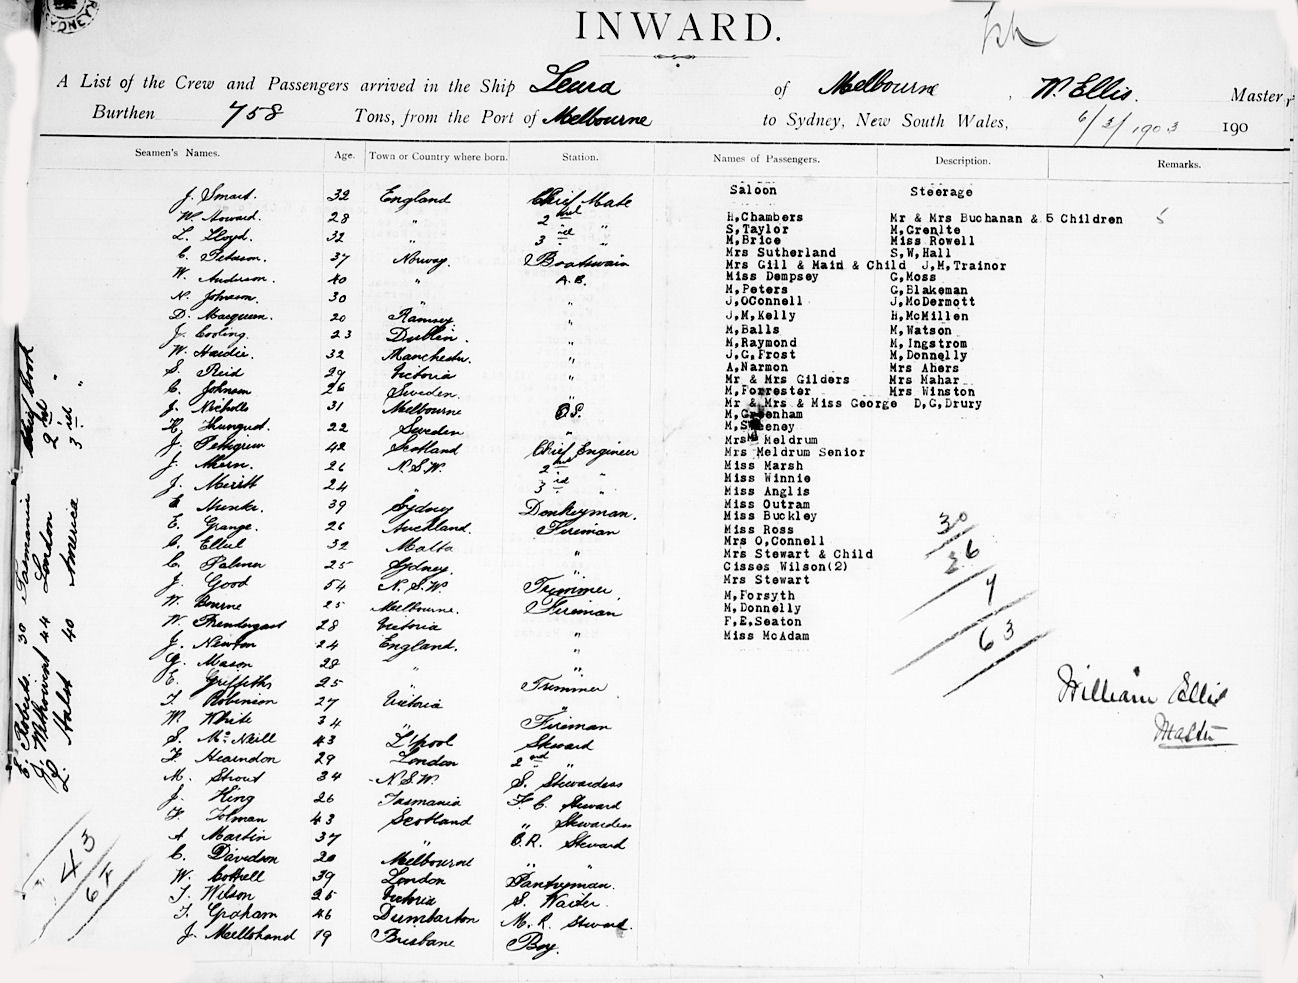 SYDNEY
INWARD.
A List of the Crew and Passengers arrived in the Ship Leura of Melbourne, W. Ellis. Master,
Burthen 758 Tons, from the Port of Melbourne to Sydney, New South Wales, 6/3/1903 190
Seamen's Names. Age. Town or Country where born. Station. Names of Passengers. Description. Remarks.
Saloon Steerage
J. Smart. 32 England Chief Mate
W. Howard. 28 " 2nd "
L. Lloyd. 32 " 3rd "
C. Peterson. 37 Norway. Boatswain
W. Anderson. 40 " A.B.
N. Johnson. 30 " "
D. Macqueen. 20 Ramsey "
J. Cooling. 23 Dublin. "
W. Hardie. 32 Manchester. "
S. Reid 29 Victoria "
C. Johnson 26 Sweden. "
J. Nicholls 31 Melbourne O.S.
H. 22 Sweden "
J. Pettigrew 42 Scotland Chief Engineer
J. Ahern. 26 N.S.W. 2nd "
J. Merritt 24 " 3rd "
E. 39 Sydney Donkeyman.
E. Grange. 26 Auckland. Fireman
C. Ellul 32 Malta "
C. Palmer 25 Sydney. "
J. Good 54 N.S.W. Trimmer.
W. Bourne 25 Melbourne. Fireman
W. Prendergast 28 Victoria "
J. Newton 24 England. "
G. Mason 28 " "
E. Griffiths 25 Trimmer
T. Robinson 27 Victoria "
W. White 34 " Fireman
S. McNeill 43 L'pool Steward
F. Hearndon 29 London 2nd "
M. Strout 34 N.S.W. S. Stewardess
J. King 26 Tasmania F.C. Steward
F. Tolman 43 Scotland " Stewardess
A. Martin 37 " O.R. Steward
C. Davidson 20 Melbourne "
W. Cottrell 39 London Pantryman.
T. Wilson 25 Victoria S. Waiter.
T. Graham 46 Dumbarton M.R. Steward.
J. 19 Brisbane Boy.
H,Chambers Mr & Mrs Buchanan & 5 Children 5
S,Taylor M,Grenlte
M,Brice Miss Rowell
Mrs Sutherland S,W,Hall
Mrs Gill & Maid & Child J,M,Trainor
Miss Dempsey G,Moss
M,Peters G,Blakeman
J,OConnell J,McDermott
J,M,Kelly H,McMillen
M,Balls M,Watson
M,Raymond M,Ingstrom
J,C,Frost M,Donnelly
A,Narmon Mrs Ahers
Mr & Mrs Gilders Mrs Mahar
M,Forrester Mrs Winston
Mr & Mrs & Miss George D,C,Drury
M,Greenham
M,Sweeney
Mrs Meldrum
Mrs Meldrum Senior
Miss Marsh
Miss Winnie
Miss Anglis
Miss Outram
Miss Buckley
Miss Ross
Mrs O,Connell
Mrs Stewart & Child
Cisses Wilson(2)
Mrs Stewart
M,Forsyth
M,Donnelly
F,E,Seaton
Miss McAdam
30
26
7
63
William Ellis
Master
E. Roberts. 30 Tasmania Chief Cook
44 London 2nd "
L. Hales 40 America 3rd "
43